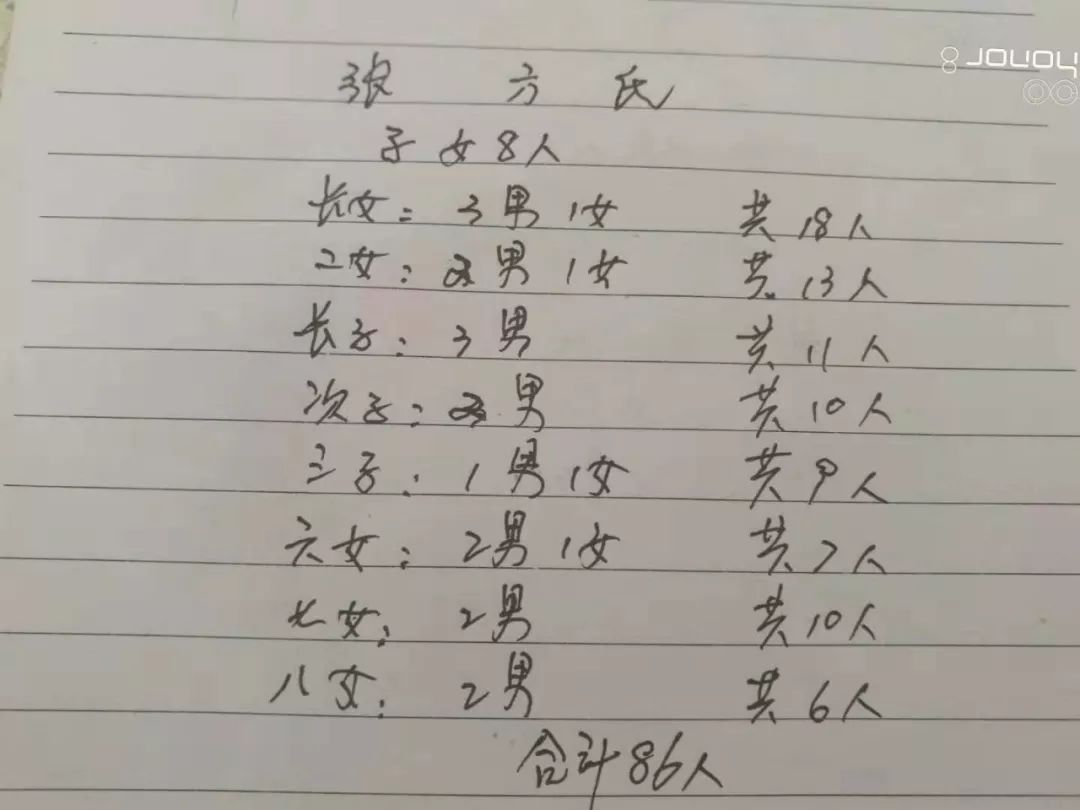 JOYOY
张 方 氏
子女8人
长女：3男1女 共18人
二女：男1女 共13人
长子：3男 共11人
次子：男 共10人
三子：1男1女 共9人
六女：2男1女 共7人
七女：2男 共10人
八女：2男 共6人
合计86人